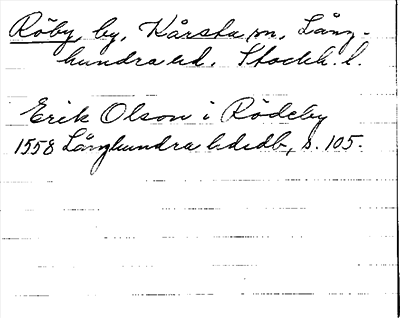 Röby, by, Kårsta sn, Lång-
hundra hd. Stockh. l.
Erik Olson i Rödeby
1558 Långhundra hdsdb, s. 105.